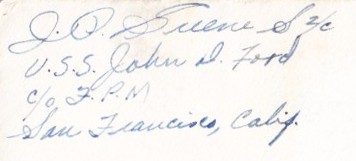 J. P. Greene S 2/c
U.S.S. John D. Ford
c/o, F. P. M
San Francisco, Calif.